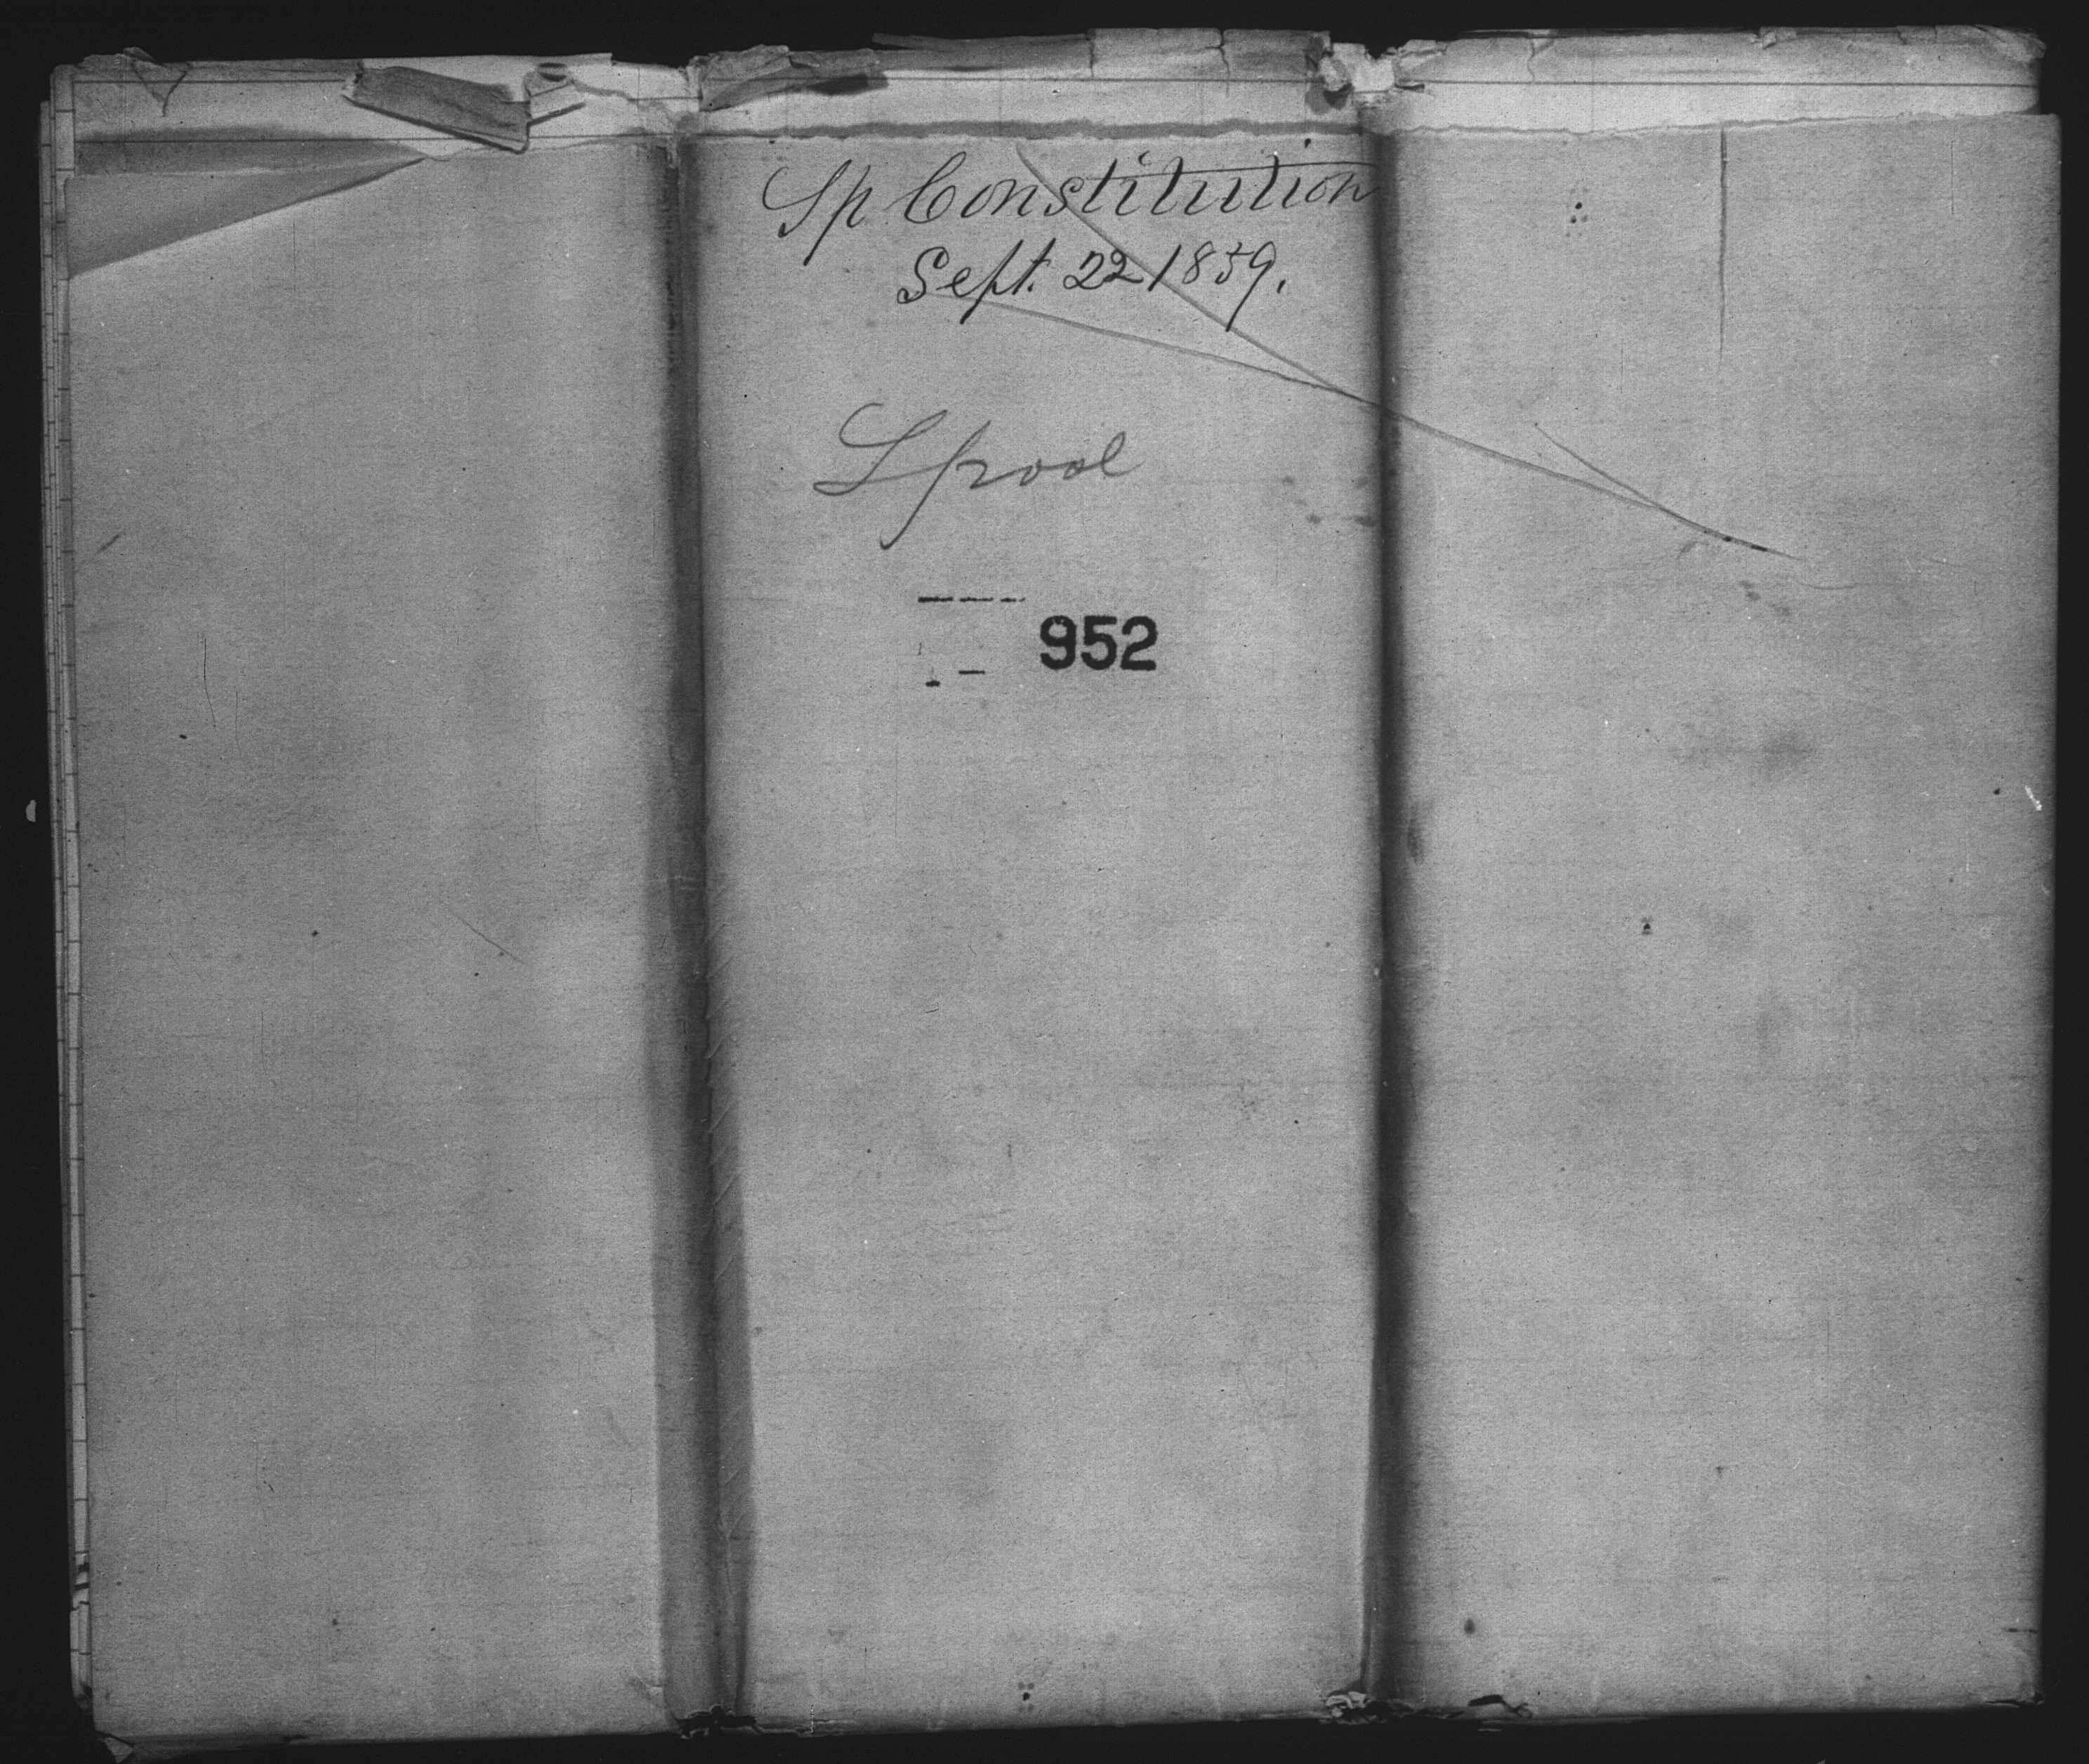 Sp Constitution
Sept. 22 1859.
Lpool
952